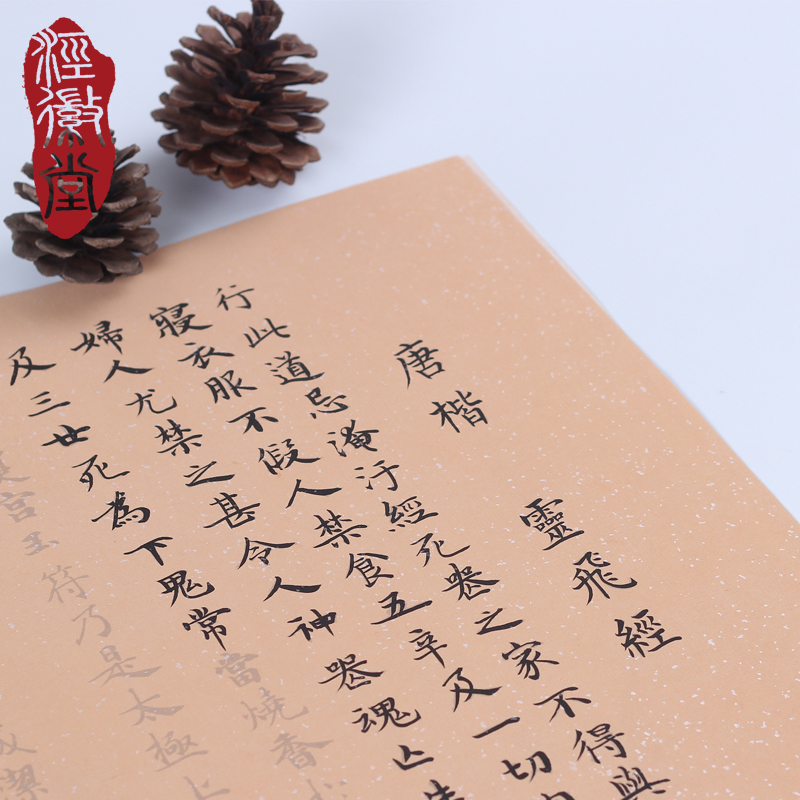 涇徽堂
唐楷
靈飛經
行此道忌淹汙經死喪之家不得與
寢衣服不假人禁食五辛及一切
婦人尤禁之甚令人神喪魂亡
及三世死為下鬼常當燒香
宮玉符乃是太極上
潔